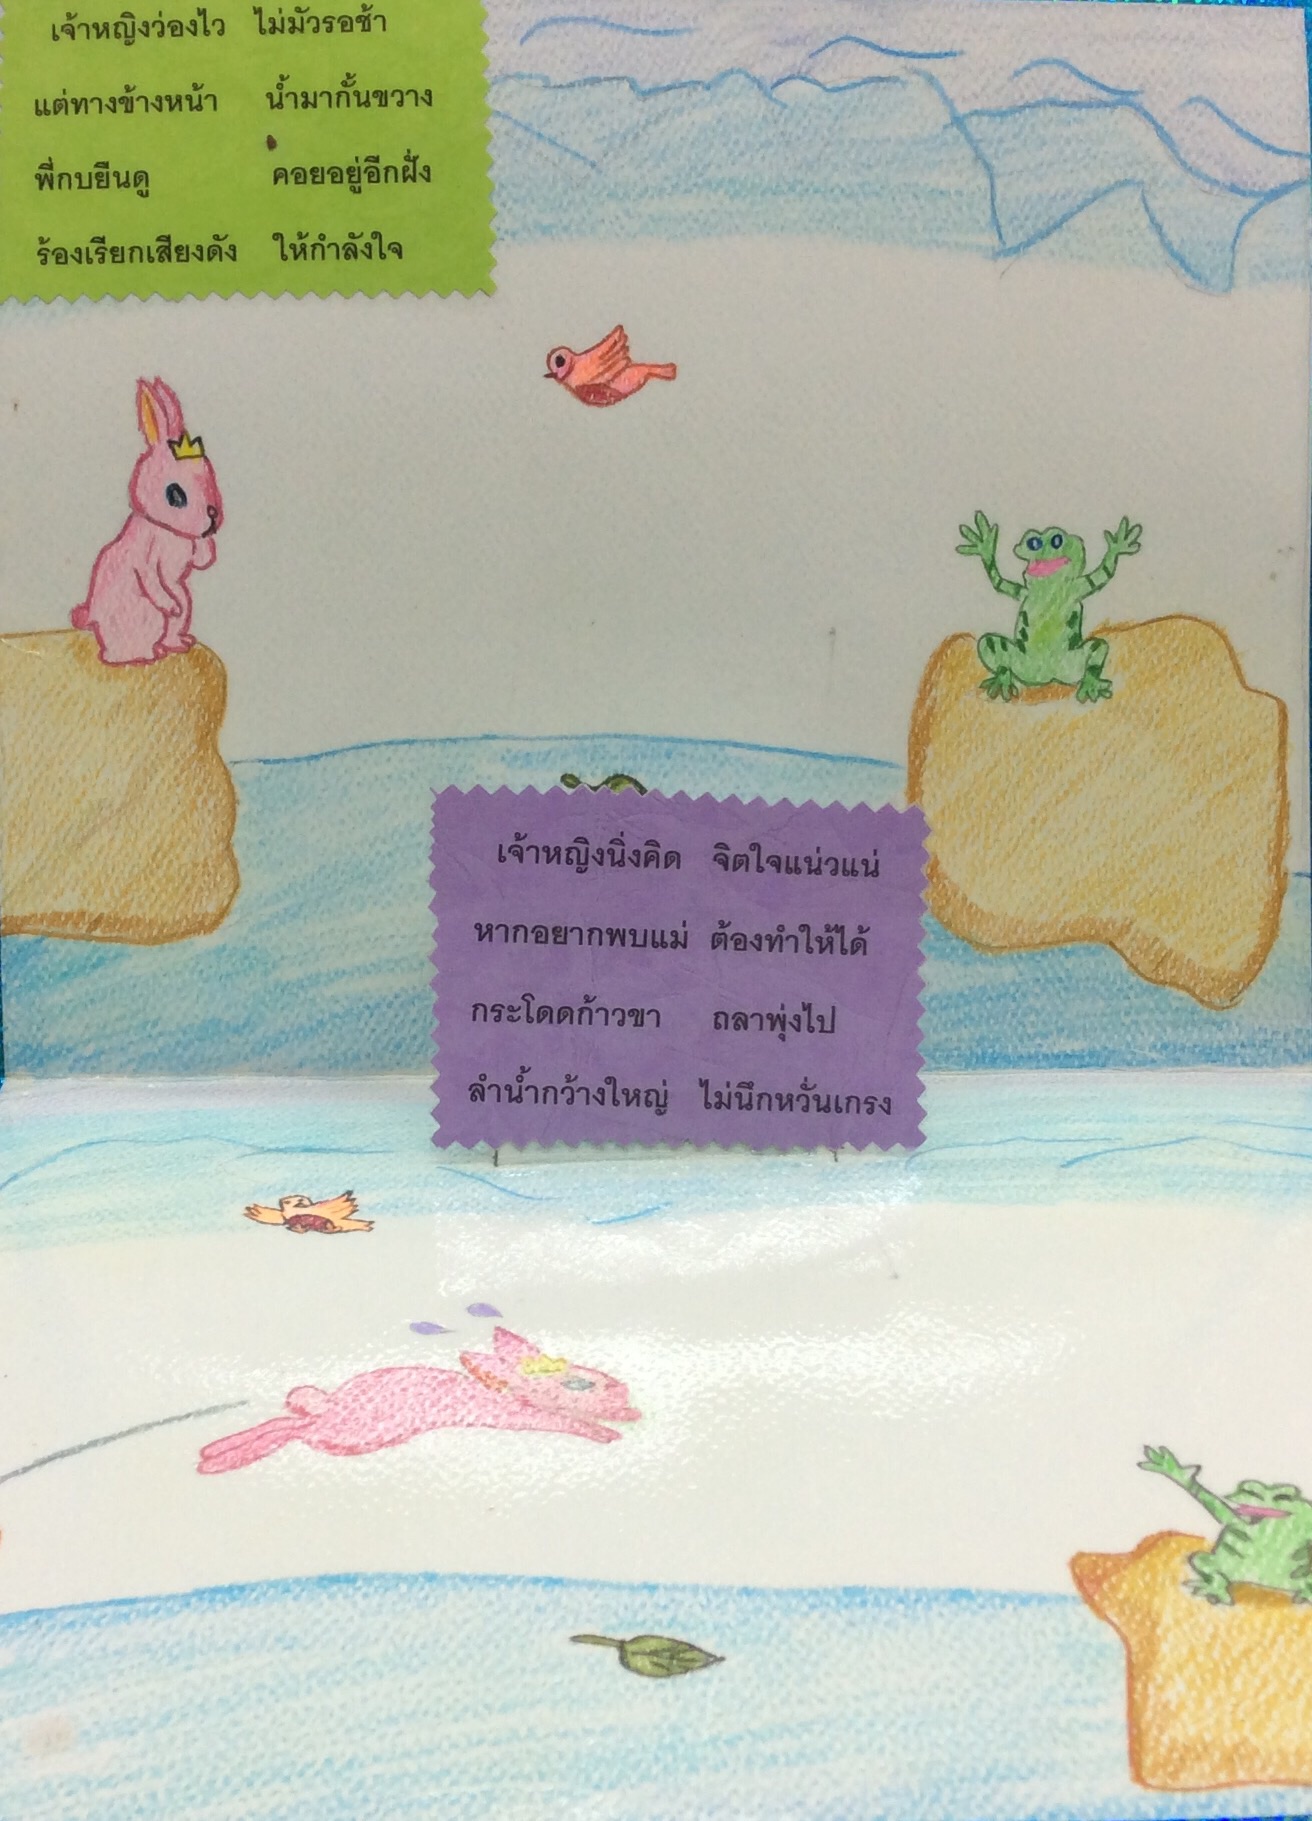 เจ้าหญิงว่องไว ไม่มัวรอช้า
แต่ทางข้างหน้า น้ำมากั้นขวาง
พี่กบยืนดู คอยอยู่อีกฝั่ง
ร้องเรียกเสียงดัง ให้กำลังใจ
เจ้าหญิงนิ่งคิด จิตใจแน่วแน่
หากอยากพบแม่ ต้องทำให้ได้
กระโดดก้าวขา ถลาพุ่งไป
ลำน้ำกว้างใหญ่ ไม่นึกหวั่นเกรง